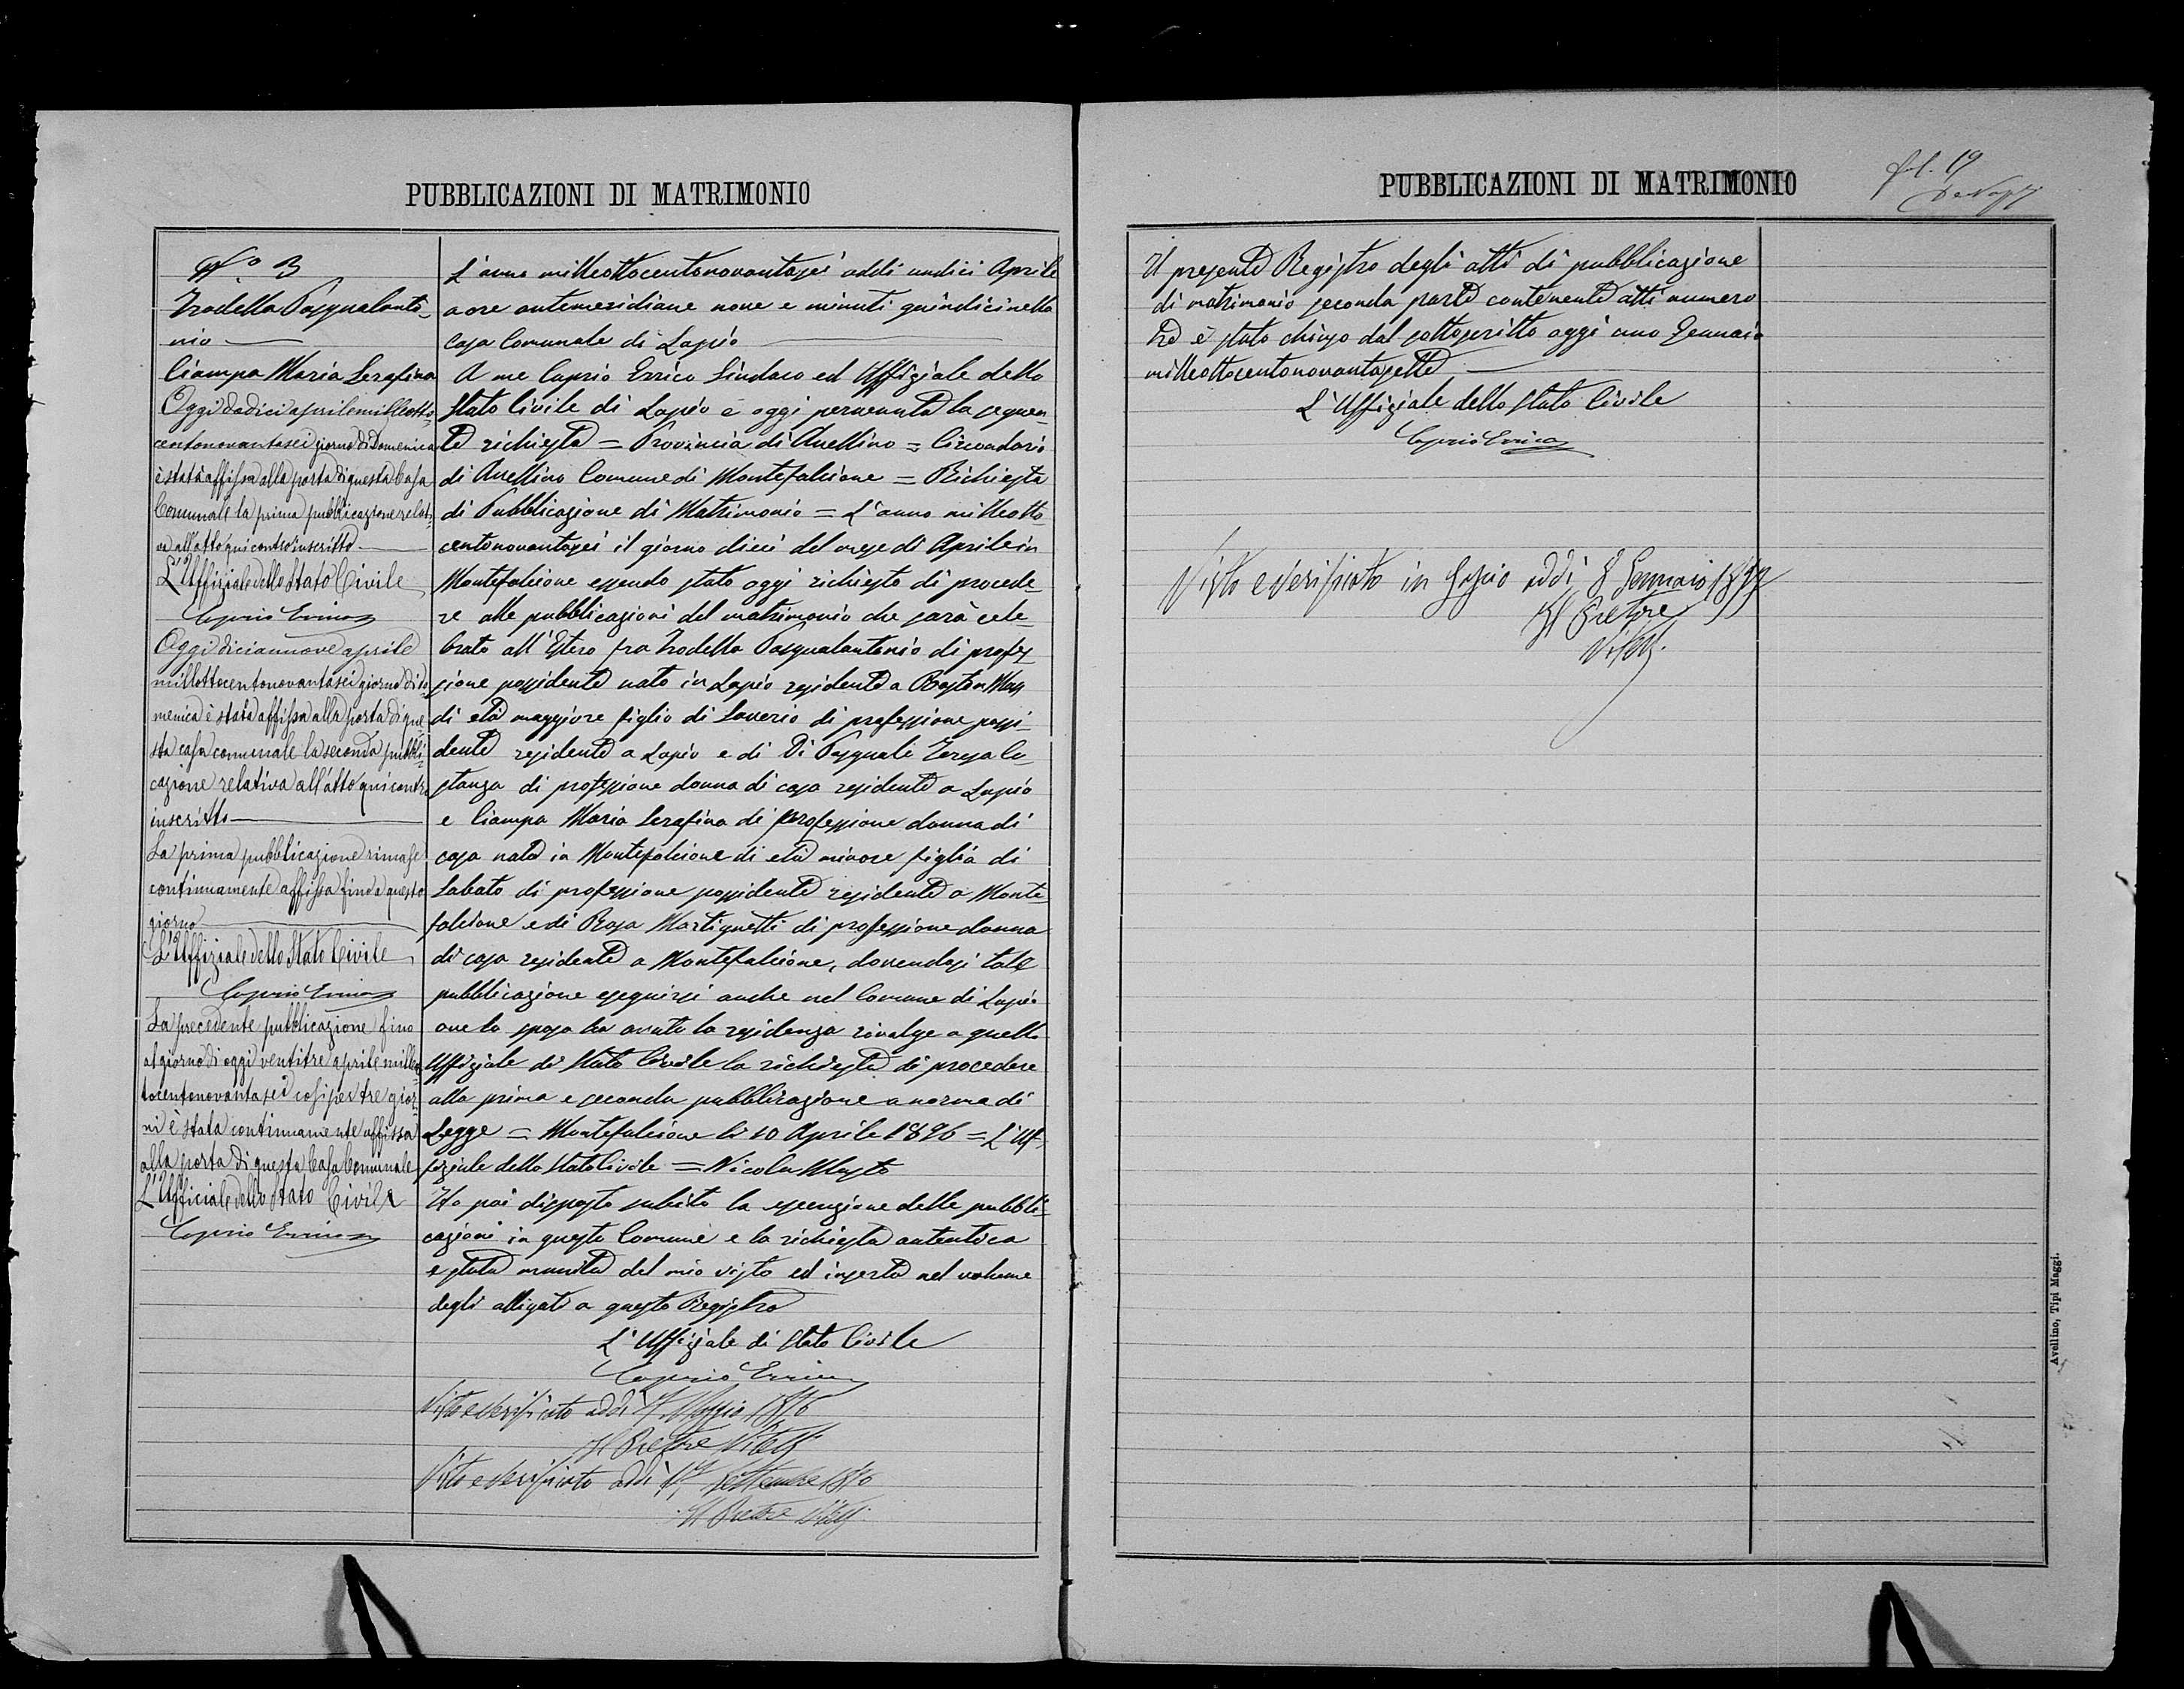 PUBBLICAZIONI DI MATRIMONIO
N.º 3
Trodella Pasqualanto-
nio
Ciampa Maria Serafina
Oggi dodici aprile milleotto-
centonovantasei giorno di domenica
è stata affissa alla porta di questa Casa
Comunale la prima pubblicazione relati-
va all'atto qui contro inscritto.
L'Uffiziale dello Stato Civile
Caprio Errico
Oggi diciannove aprile
millottocentonovantasei giorno di do-
menica è stata affissa alla porta di que-
sta casa comunale la seconda pubbli-
cazione relativa all'atto qui contro
inscritto
La prima pubblicazione rimase
continuamente affissa fino a questo
giorno
L'Uffiziale dello Stato Civile
Caprio Errico
La precedente pubblicazione fino
al giorno di oggi ventitre aprile millot-
tocentonovantasei così per tre gior-
ni è stata continuamente affissa
alla porta di questa Casa Comunale
L'Ufficiale dello Stato Civile
Caprio Errico
L'anno milleottocentonovantasei addi undici Aprile
a ore antemeridiane nove e minuti quindici nella
Casa Comunale di Lapio
A me Caprio Errico Sindaco ed Uffiziale dello
Stato Civile di Lapio è oggi pervenuta la seguen-
te richiesta = Provincia di Avellino = Circondario
di Avellino Comune di Montefalcione = Richiesta
di Pubblicazione di Matrimonio = L'anno milleotto-
centonovantasei il giorno dieci del mese di Aprile in
Montefalcione essendo stato oggi richiesto di procede-
re alle pubblicazioni del matrimonio che sarà cele-
brato all'Estero fra Trodella Pasqualantonio di profes-
sione possidente nato in Lapio residente a Boston Mass
di età maggiore figlio di Saverio di professione possi-
dente residente a Lapio e di Di Pasquale Teresa Co-
stanza di professione donna di casa residente a Lapio
e Ciampa Maria Serafina di professione donna di
casa nata in Montefalcione di età minore figlia di
Sabato di professione possidente residente a Monte
falcione e di Rosa Martignetti di professione donna
di casa residente a Montefalcione, dovendosi tale
pubblicazione eseguirsi anche nel Comune di Lapio
ove lo sposo ha avuto la residenza rivolge a quello
Uffiziale di Stato Civile la richiesta di procedere
alla prima e seconda pubblicazione a norma di
Legge = Montefalcione li 10 Aprile 1896 = L'Uf-
fiziale dello Stato Civile = Nicola
Ho poi disposto subito la esecuzione delle pubbli-
cazioni in questo Comune e la richiesta autentica
è stata munita del mio visto ed inserta nel volume
degli alligati a questo Registro
L'Uffiziale di Stato Civile
Caprio Errico
Visto e verificato addì Maggio 1896
Il Pretore
Visto e verificato addì Settembre 1896
Il Pretore
PUBBLICAZIONI DI MATRIMONIO
fol. 19
Il presente Registro degli atti di pubblicazione
di matrimonio seconda parte contenente atti numero
tre è stato chiuso dal sottoscritto oggi uno Gennaio
milleottocentonovantasette
L'Uffiziale dello Stato Civile
Caprio Errico
Visto e verificato in Lapio addì 8 Gennaio 1897
Il Pretore
Avellino, Tipi Maggi.